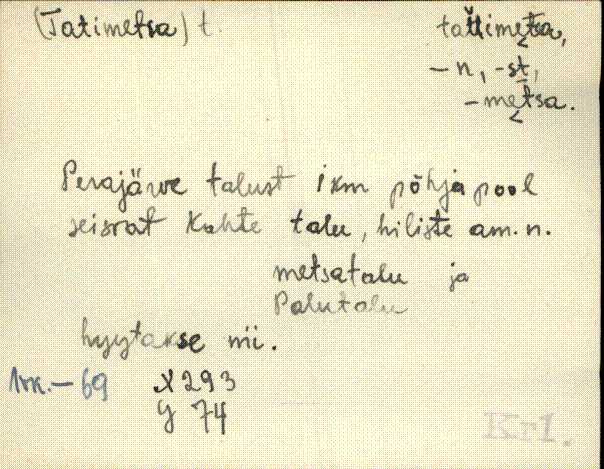 (Tatimetsa) t. tattimetsa,
-n, -st,
-metsa.
Perajärve talust 1 km põhja pool
seisvat kahte talu, hiliste am. n.
metsatalu ja
Palutalu
hyytakse nii.
69 X 293
Y 74
Kr1.